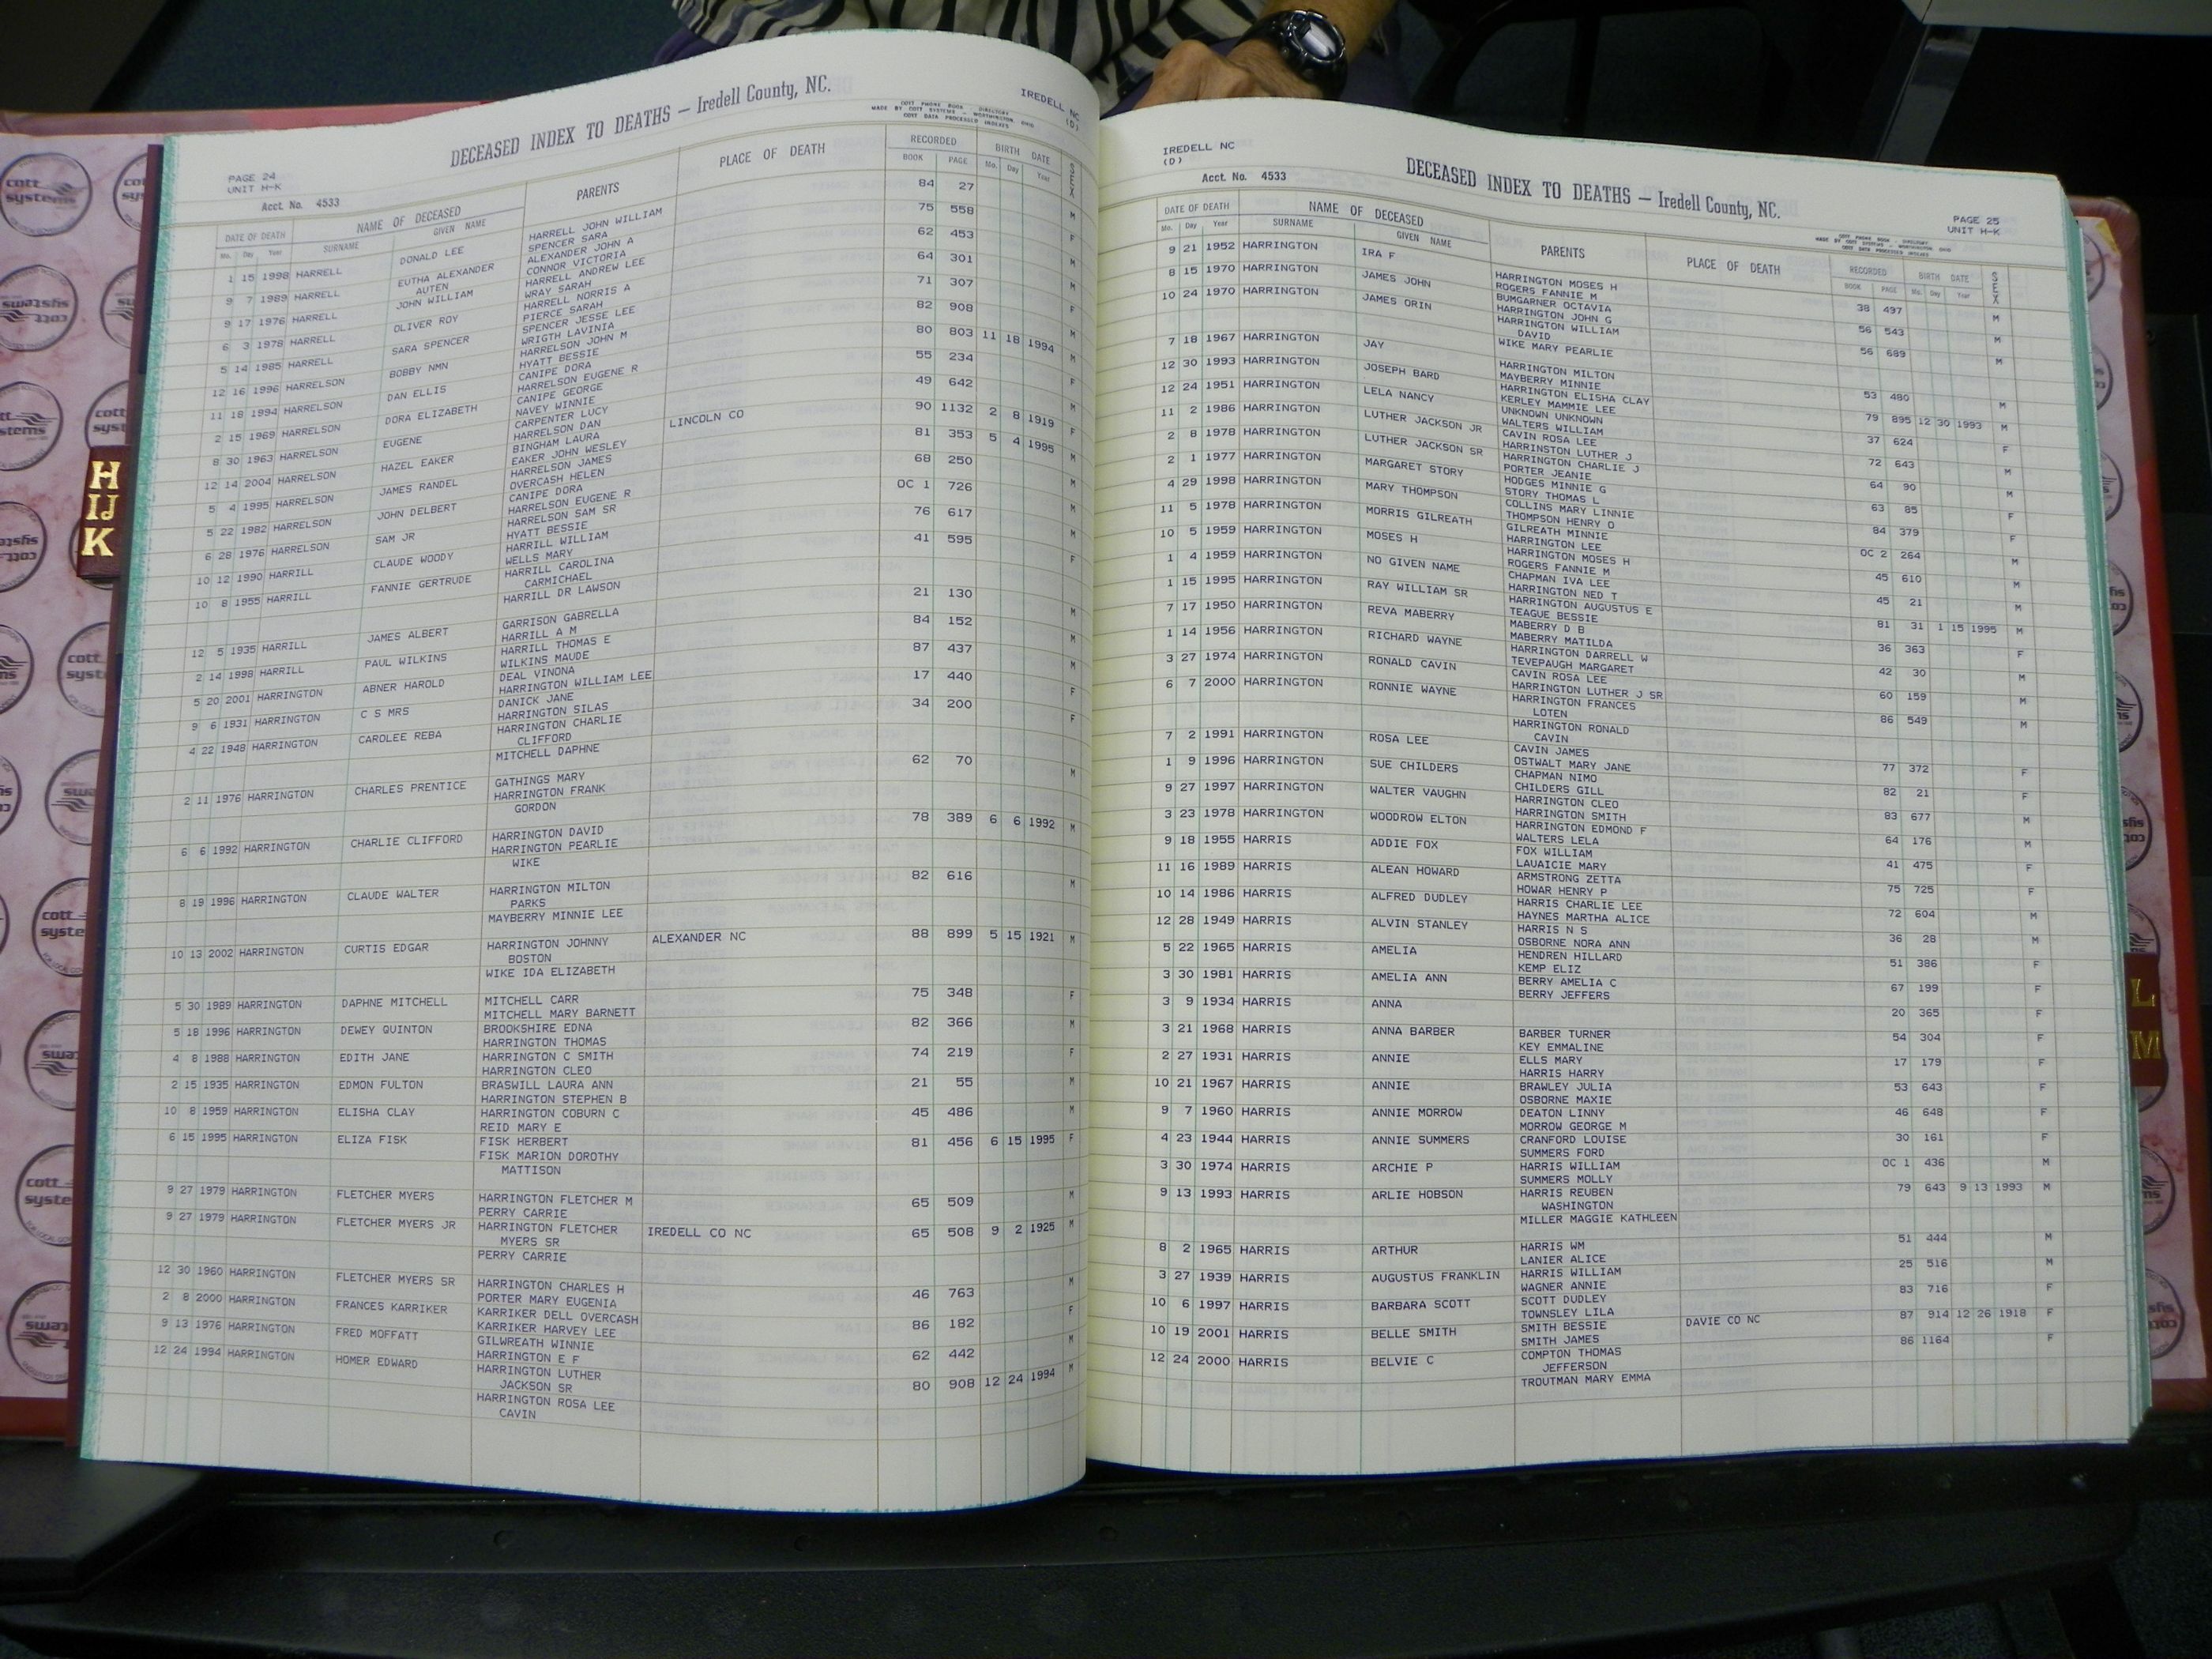 PAGE 24
UNIT H-K
DECEASED INDEX TO DEATHS — Iredell County, NC.
COTT PHONE BOOK - DIRECTORY
MADE BY COTT SYSTEMS - WORTHINGTON, OHIO
COTT DATA PROCESSED INDEXES
IREDELL NC
(D)
Acct. No. 4533
DATE OF DEATH NAME OF DECEASED PARENTS PLACE OF DEATH RECORDED BIRTH DATE SEX
Mo. Day Year SURNAME GIVEN NAME BOOK PAGE Mo. Day Year
1 15 1998 HARRELL DONALD LEE HARRELL JOHN WILLIAM 84 27 M
SPENCER SARA
9 7 1989 HARRELL EUTHA ALEXANDER ALEXANDER JOHN A 75 558 F
AUTEN CONNOR VICTORIA
9 17 1976 HARRELL JOHN WILLIAM HARRELL ANDREW LEE 62 453 M
WRAY SARAH
6 3 1978 HARRELL OLIVER ROY HARRELL NORRIS A 64 301 M
PIERCE SARAH
5 14 1985 HARRELL SARA SPENCER SPENCER JESSE LEE 71 307 F
WRIGTH LAVINIA
12 16 1996 HARRELSON BOBBY NMN HARRELSON JOHN M 82 908 M
HYATT BESSIE
11 18 1994 HARRELSON DAN ELLIS CANIPE DORA 80 803 11 18 1994 M
HARRELSON EUGENE R
2 15 1969 HARRELSON DORA ELIZABETH CANIPE GEORGE 55 234 F
NAVEY WINNIE
8 30 1963 HARRELSON EUGENE CARPENTER LUCY 49 642 M
HARRELSON DAN
12 14 2004 HARRELSON HAZEL EAKER BINGHAM LAURA LINCOLN CO 90 1132 2 8 1919 F
EAKER JOHN WESLEY
5 4 1995 HARRELSON JAMES RANDEL HARRELSON JAMES 81 353 5 4 1995 M
OVERCASH HELEN
5 22 1982 HARRELSON JOHN DELBERT CANIPE DORA 68 250 M
HARRELSON EUGENE R
6 28 1976 HARRELSON SAM JR HARRELSON SAM SR OC 1 726 M
HYATT BESSIE
10 12 1990 HARRILL CLAUDE WOODY HARRILL WILLIAM 76 617 M
WELLS MARY
10 8 1955 HARRILL FANNIE GERTRUDE HARRILL CAROLINA 41 595 F
CARMICHAEL
HARRILL DR LAWSON
12 5 1935 HARRILL JAMES ALBERT GARRISON GABRELLA 21 130 M
HARRILL A M
2 14 1998 HARRILL PAUL WILKINS HARRILL THOMAS E 84 152 M
WILKINS MAUDE
5 20 2001 HARRINGTON ABNER HAROLD DEAL VINONA 87 437 M
HARRINGTON WILLIAM LEE
9 6 1931 HARRINGTON C S MRS DANICK JANE 17 440 F
HARRINGTON SILAS
4 22 1948 HARRINGTON CAROLEE REBA HARRINGTON CHARLIE 34 200 F
CLIFFORD
MITCHELL DAPHNE
2 11 1976 HARRINGTON CHARLES PRENTICE GATHINGS MARY 62 70 M
HARRINGTON FRANK
GORDON
6 6 1992 HARRINGTON CHARLIE CLIFFORD HARRINGTON DAVID 78 389 6 6 1992 M
HARRINGTON PEARLIE
WIKE
8 19 1996 HARRINGTON CLAUDE WALTER HARRINGTON MILTON 82 616 M
PARKS
MAYBERRY MINNIE LEE
10 13 2002 HARRINGTON CURTIS EDGAR HARRINGTON JOHNNY ALEXANDER NC 88 899 5 15 1921 M
BOSTON
WIKE IDA ELIZABETH
5 30 1989 HARRINGTON DAPHNE MITCHELL MITCHELL CARR 75 348 F
MITCHELL MARY BARNETT
5 18 1996 HARRINGTON DEWEY QUINTON BROOKSHIRE EDNA 82 366 M
HARRINGTON THOMAS
4 8 1988 HARRINGTON EDITH JANE HARRINGTON C SMITH 74 219 F
HARRINGTON CLEO
2 15 1935 HARRINGTON EDMON FULTON BRASWILL LAURA ANN 21 55 M
HARRINGTON STEPHEN B
10 8 1959 HARRINGTON ELISHA CLAY HARRINGTON COBURN C 45 486 M
REID MARY E
6 15 1995 HARRINGTON ELIZA FISK FISK HERBERT 81 456 6 15 1995 F
FISK MARION DOROTHY
MATTISON
9 27 1979 HARRINGTON FLETCHER MYERS HARRINGTON FLETCHER M 65 509 M
PERRY CARRIE
9 27 1979 HARRINGTON FLETCHER MYERS JR HARRINGTON FLETCHER IREDELL CO NC 65 508 9 2 1925 M
MYERS SR
PERRY CARRIE
12 30 1960 HARRINGTON FLETCHER MYERS SR HARRINGTON CHARLES H 46 763 M
PORTER MARY EUGENIA
2 8 2000 HARRINGTON FRANCES KARRIKER KARRIKER DELL OVERCASH 86 182 F
KARRIKER HARVEY LEE
9 13 1976 HARRINGTON FRED MOFFATT GILWREATH WINNIE 62 442 M
HARRINGTON E F
12 24 1994 HARRINGTON HOMER EDWARD HARRINGTON LUTHER 80 908 12 24 1994 M
JACKSON SR
HARRINGTON ROSA LEE
CAVIN
IREDELL NC
(D)
Acct. No. 4533
DECEASED INDEX TO DEATHS — Iredell County, NC.
PAGE 25
UNIT H-K
COTT PHONE BOOK - DIRECTORY
MADE BY COTT SYSTEMS - WORTHINGTON, OHIO
COTT DATA PROCESSED INDEXES
DATE OF DEATH NAME OF DECEASED PARENTS PLACE OF DEATH RECORDED BIRTH DATE SEX
Mo. Day Year SURNAME GIVEN NAME BOOK PAGE Mo. Day Year
9 21 1952 HARRINGTON IRA F HARRINGTON MOSES H 38 497 M
ROGERS FANNIE M
8 15 1970 HARRINGTON JAMES JOHN BUMGARNER OCTAVIA 56 543 M
HARRINGTON JOHN G
10 24 1970 HARRINGTON JAMES ORIN HARRINGTON WILLIAM 56 689 M
DAVID
WIKE MARY PEARLIE
7 18 1967 HARRINGTON JAY HARRINGTON MILTON 53 480 M
MAYBERRY MINNIE
12 30 1993 HARRINGTON JOSEPH BARD HARRINGTON ELISHA CLAY 79 895 12 30 1993 M
KERLEY MAMMIE LEE
12 24 1951 HARRINGTON LELA NANCY UNKNOWN UNKNOWN 37 624 F
WALTERS WILLIAM
11 2 1986 HARRINGTON LUTHER JACKSON JR CAVIN ROSA LEE 72 643 M
HARRINSTON LUTHER J
2 8 1978 HARRINGTON LUTHER JACKSON SR HARRINGTON CHARLIE J 64 90 M
PORTER JEANIE
2 1 1977 HARRINGTON MARGARET STORY HODGES MINNIE G 63 85 F
STORY THOMAS L
4 29 1998 HARRINGTON MARY THOMPSON COLLINS MARY LINNIE 84 379 F
THOMPSON HENRY O
11 5 1978 HARRINGTON MORRIS GILREATH GILREATH MINNIE OC 2 264 M
HARRINGTON LEE
10 5 1959 HARRINGTON MOSES H HARRINGTON MOSES H 45 610 M
ROGERS FANNIE M
1 4 1959 HARRINGTON NO GIVEN NAME CHAPMAN IVA LEE 45 21 M
HARRINGTON NED T
1 15 1995 HARRINGTON RAY WILLIAM SR HARRINGTON AUGUSTUS E 81 31 1 15 1995 M
TEAGUE BESSIE
7 17 1950 HARRINGTON REVA MABERRY MABERRY D B 36 363 F
MABERRY MATILDA
1 14 1956 HARRINGTON RICHARD WAYNE HARRINGTON DARRELL W 42 30 M
TEVEPAUGH MARGARET
3 27 1974 HARRINGTON RONALD CAVIN CAVIN ROSA LEE 60 159 M
HARRINGTON LUTHER J SR
6 7 2000 HARRINGTON RONNIE WAYNE HARRINGTON FRANCES 86 549 M
LOTEN
HARRINGTON RONALD
CAVIN
7 2 1991 HARRINGTON ROSA LEE CAVIN JAMES 77 372 F
OSTWALT MARY JANE
1 9 1996 HARRINGTON SUE CHILDERS CHAPMAN NIMO 82 21 F
CHILDERS GILL
9 27 1997 HARRINGTON WALTER VAUGHN HARRINGTON CLEO 83 677 M
HARRINGTON SMITH
3 23 1978 HARRINGTON WOODROW ELTON HARRINGTON EDMOND F 64 176 M
WALTERS LELA
9 18 1955 HARRIS ADDIE FOX FOX WILLIAM 41 475 F
LAUAICIE MARY
11 16 1989 HARRIS ALEAN HOWARD ARMSTRONG ZETTA 75 725 F
HOWAR HENRY P
10 14 1986 HARRIS ALFRED DUDLEY HARRIS CHARLIE LEE 72 604 M
HAYNES MARTHA ALICE
12 28 1949 HARRIS ALVIN STANLEY HARRIS N S 36 28 M
OSBORNE NORA ANN
5 22 1965 HARRIS AMELIA HENDREN HILLARD 51 386 F
KEMP ELIZ
3 30 1981 HARRIS AMELIA ANN BERRY AMELIA C 67 199 F
BERRY JEFFERS
3 9 1934 HARRIS ANNA 20 365 F
3 21 1968 HARRIS ANNA BARBER BARBER TURNER 54 304 F
KEY EMMALINE
2 27 1931 HARRIS ANNIE ELLS MARY 17 179 F
HARRIS HARRY
10 21 1967 HARRIS ANNIE BRAWLEY JULIA 53 643 F
OSBORNE MAXIE
9 7 1960 HARRIS ANNIE MORROW DEATON LINNY 46 648 F
MORROW GEORGE M
4 23 1944 HARRIS ANNIE SUMMERS CRANFORD LOUISE 30 161 F
SUMMERS FORD
3 30 1974 HARRIS ARCHIE P HARRIS WILLIAM OC 1 436 M
SUMMERS MOLLY
9 13 1993 HARRIS ARLIE HOBSON HARRIS REUBEN 79 643 9 13 1993 M
WASHINGTON
MILLER MAGGIE KATHLEEN
8 2 1965 HARRIS ARTHUR HARRIS WM 51 444 M
LANIER ALICE
3 27 1939 HARRIS AUGUSTUS FRANKLIN HARRIS WILLIAM 25 516 M
WAGNER ANNIE
10 6 1997 HARRIS BARBARA SCOTT SCOTT DUDLEY 83 716 F
TOWNSLEY LILA
10 19 2001 HARRIS BELLE SMITH SMITH BESSIE DAVIE CO NC 87 914 12 26 1918 F
SMITH JAMES
12 24 2000 HARRIS BELVIE C COMPTON THOMAS 86 1164 F
JEFFERSON
TROUTMAN MARY EMMA
H
IJ
K
L
M
cott
systems